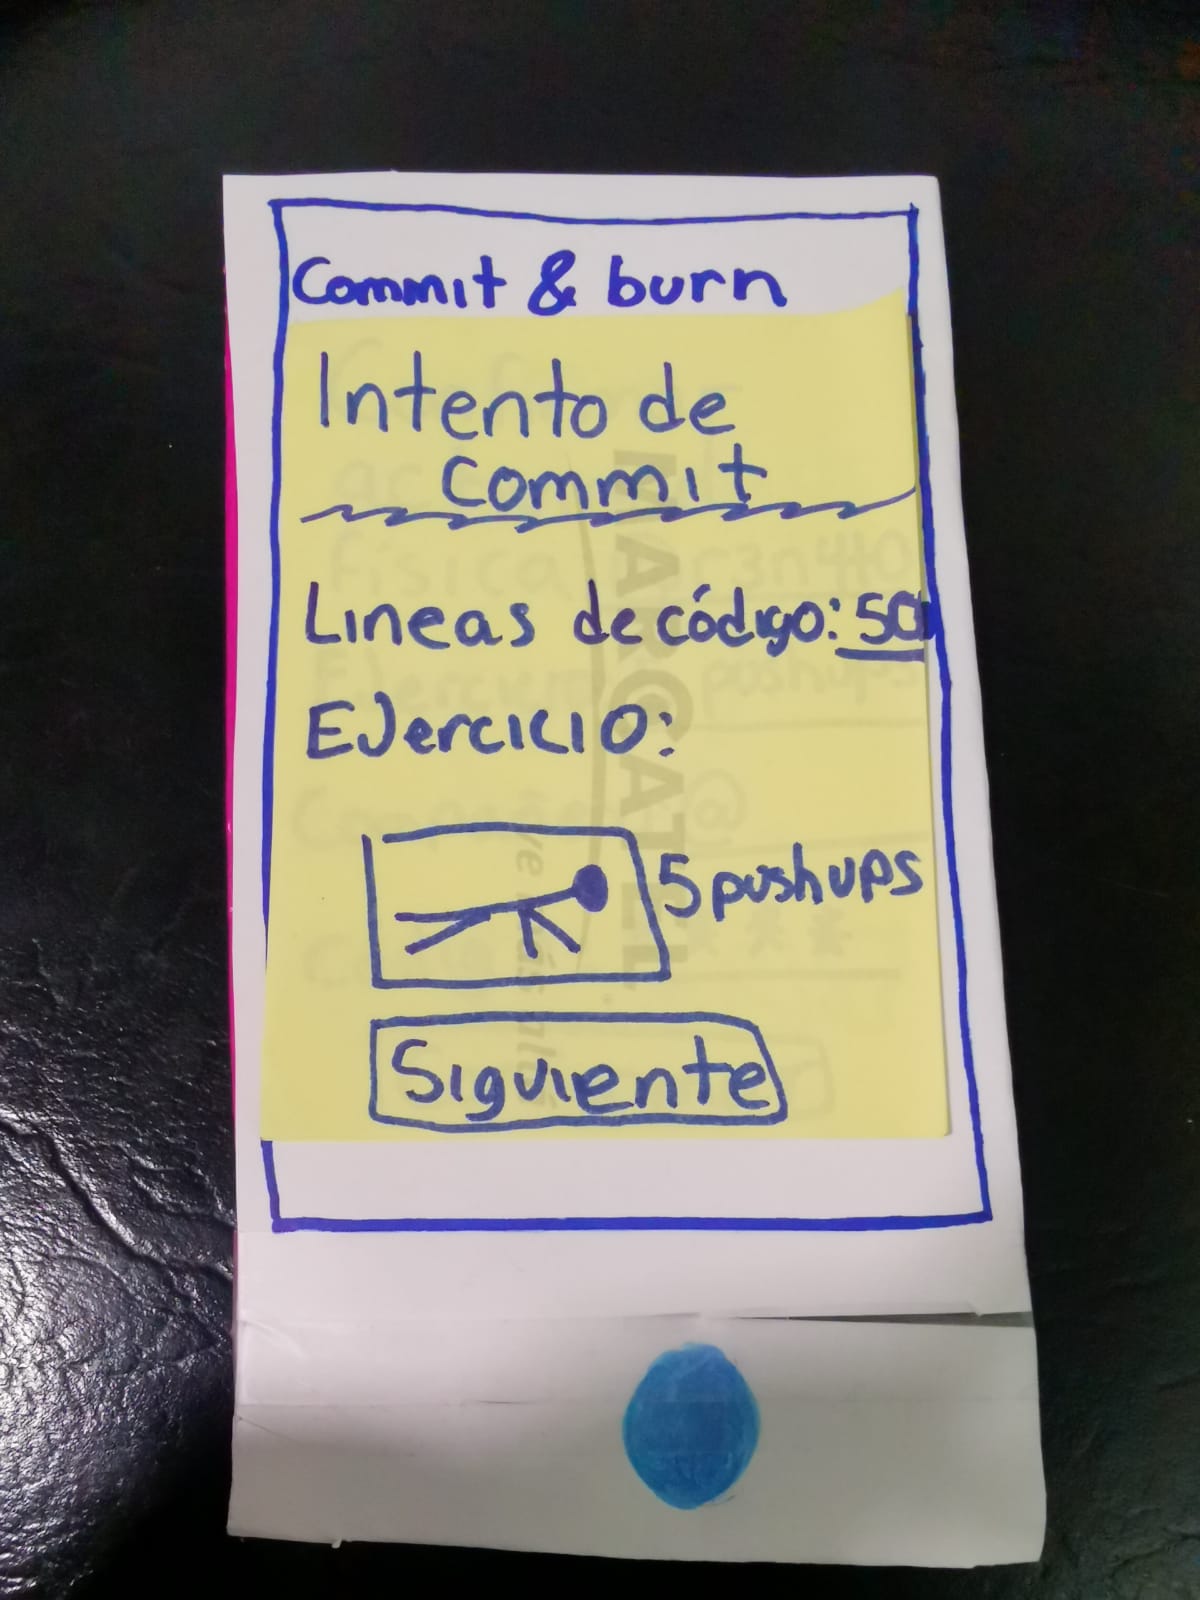 Commit & burn
Intento de
Commit
Lineas de código: 50
Ejercicio:
5 pushups
Siguiente